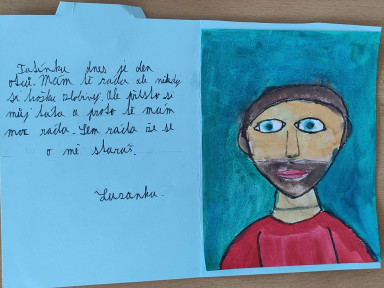 Tatínku dnes je den
otců. Mám tě ráda ale někdy
si trošku zlobivý. Ale přesto si
můj tata a proto tě mám
moc ráda. Sem ráda že se
o mě staráš.
Zuzanka.